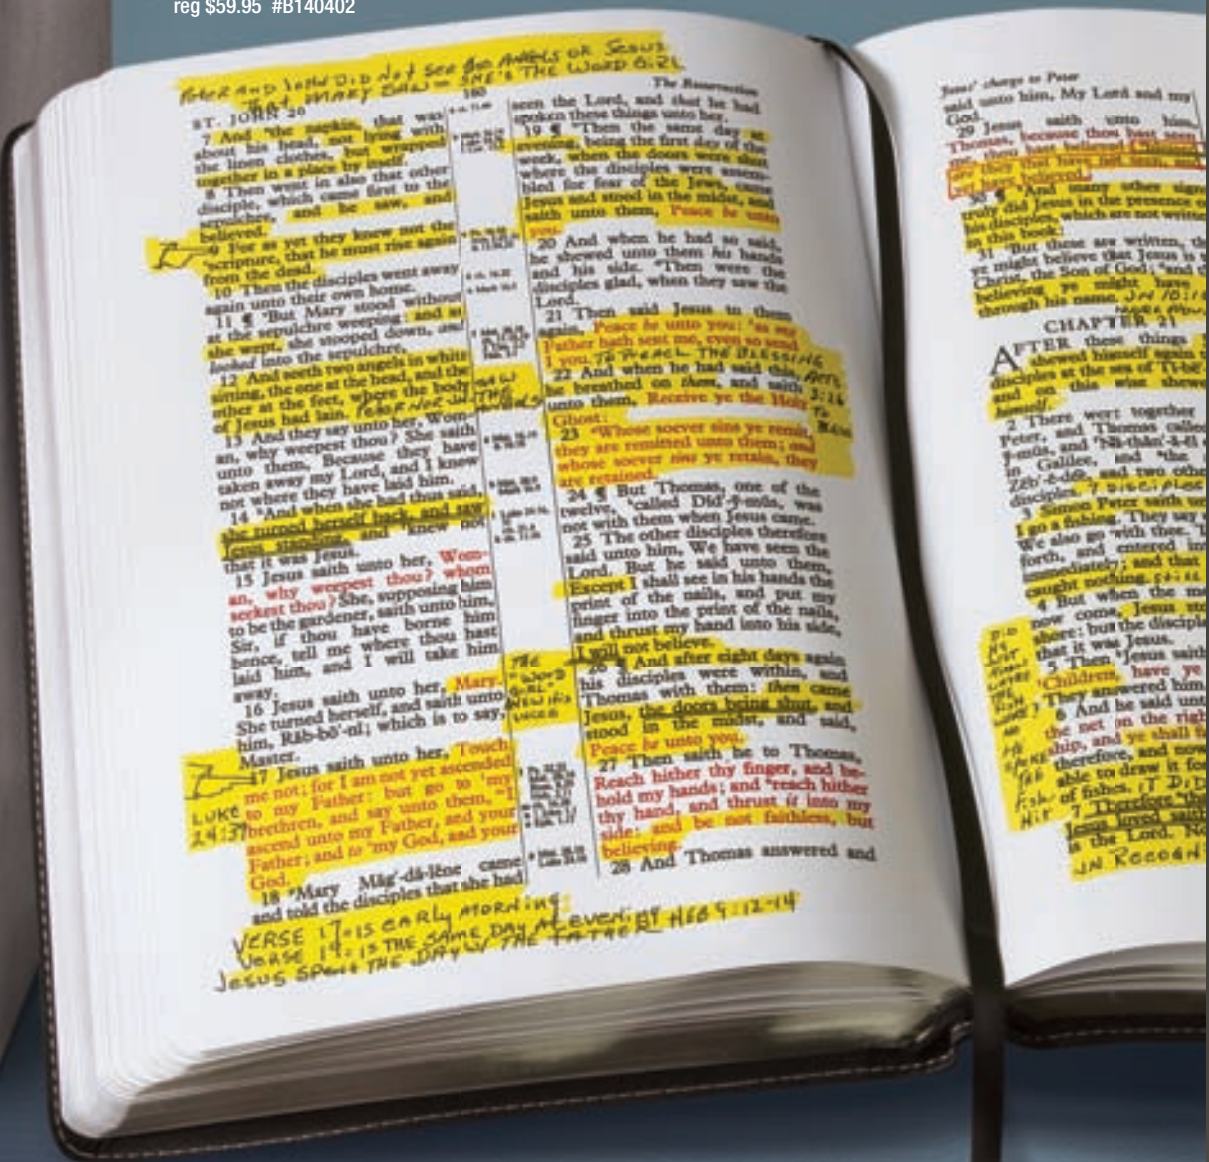 reg $59.95 #B140402
PETER AND JOHN DID NOT SEE ANGELS OR JESUS
THAT MARY SAW - SHE'S THE WORD GIRL
ST. JOHN 20
The Resurrection
7 And the napkin, that was
about his head, not lying with
the linen clothes, but wrapped
together in a place by itself.
8 Then went in also that other
disciple, which came first to the
sepulchre, and he saw, and
believed.
9 For as yet they knew not the
scripture, that he must rise again
from the dead.
10 Then the disciples went away
again unto their own home.
11 ¶ But Mary stood without
at the sepulchre weeping: and as
she wept, she stooped down, and
looked into the sepulchre,
12 And seeth two angels in white
sitting, the one at the head, and the
other at the feet, where the body
of Jesus had lain.
13 And they say unto her, Wom-
an, why weepest thou? She saith
unto them, Because they have
taken away my Lord, and I know
not where they have laid him.
14 And when she had thus said,
she turned herself back, and saw
Jesus standing, and knew not
that it was Jesus.
15 Jesus saith unto her, Wom-
an, why weepest thou? whom
seekest thou? She, supposing him
to be the gardener, saith unto him,
Sir, if thou have borne him
hence, tell me where thou hast
laid him, and I will take him
away.
16 Jesus saith unto her, Mary.
She turned herself, and saith unto
him, Rab-bo'-ni; which is to say,
Master.
THE
WORD
GIRL
17 Jesus saith unto her, Touch
me not; for I am not yet ascended
to my Father: but go to my
brethren, and say unto them, I
ascend unto my Father, and your
Father; and to my God, and your
God.
LUKE
24:39
18 Mary Măg'-dá-lēne came
and told the disciples that she had
seen the Lord, and that he had
spoken these things unto her.
19 ¶ Then the same day at
evening, being the first day of the
week, when the doors were shut
where the disciples were assem-
bled for fear of the Jews, came
Jesus and stood in the midst, and
saith unto them, Peace be unto
you.
20 And when he had so said,
he shewed unto them his hands
and his side. Then were the
disciples glad, when they saw the
Lord.
21 Then said Jesus to them
again, Peace be unto you: as my
Father hath sent me, even so send
I you. TO PREACH THE BLESSING
22 And when he had said this,
he breathed on them, and saith
unto them, Receive ye the Holy
Ghost:
23 Whose soever sins ye remit,
they are remitted unto them; and
whose soever sins ye retain, they
are retained.
24 ¶ But Thomas, one of the
twelve, called Did'-y-mus, was
not with them when Jesus came.
25 The other disciples therefore
said unto him, We have seen the
Lord. But he said unto them,
Except I shall see in his hands the
print of the nails, and put my
finger into the print of the nails,
and thrust my hand into his side,
I will not believe.
26 ¶ And after eight days again
his disciples were within, and
Thomas with them: then came
Jesus, the doors being shut, and
stood in the midst, and said,
Peace be unto you.
27 Then saith he to Thomas,
Reach hither thy finger, and be-
hold my hands; and reach hither
thy hand, and thrust it into my
side: and be not faithless, but
believing.
28 And Thomas answered and
VERSE 17 - IS EARLY MORNING:
VERSE 19: IS THE SAME DAY AT EVENING HEB 9:12-14
JESUS SPENT THE DAY W/ THE FATHER
Jesus' charge to Peter
said unto him, My Lord and my
God.
29 Jesus saith unto him,
Thomas, because thou hast seen
me, thou hast believed:
are they that have not seen, and
yet have believed.
30 ¶ And many other signs
truly did Jesus in the presence of
his disciples, which are not written
in this book:
31 But these are written, th
ye might believe that Jesus is
Christ, the Son of God; and
believing ye might have
through his name. JN 10:10
CHAPTER 21
AFTER these things
shewed himself again
disciples at the sea of Ti-be
and on this wise shewe
himself.
2 There were together
Peter, and Thomas calle
and
in Galilee, and the
and two othe
disciples. 7 DISCIPLES
3 Simon Peter saith un
I go a fishing. They say
We also go with thee. T
forth, and entered int
immediately; and that
caught nothing.
4 But when the mo
now come, Jesus sto
shore: but the discipl
that it was Jesus.
5 Then Jesus saith
Children, have ye
They answered him,
6 And he said unt
the net on the righ
ship, and ye shall f
therefore, and now
able to draw it fo
of fishes. IT DID
7 Therefore th
Jesus loved saith
is the Lord. No